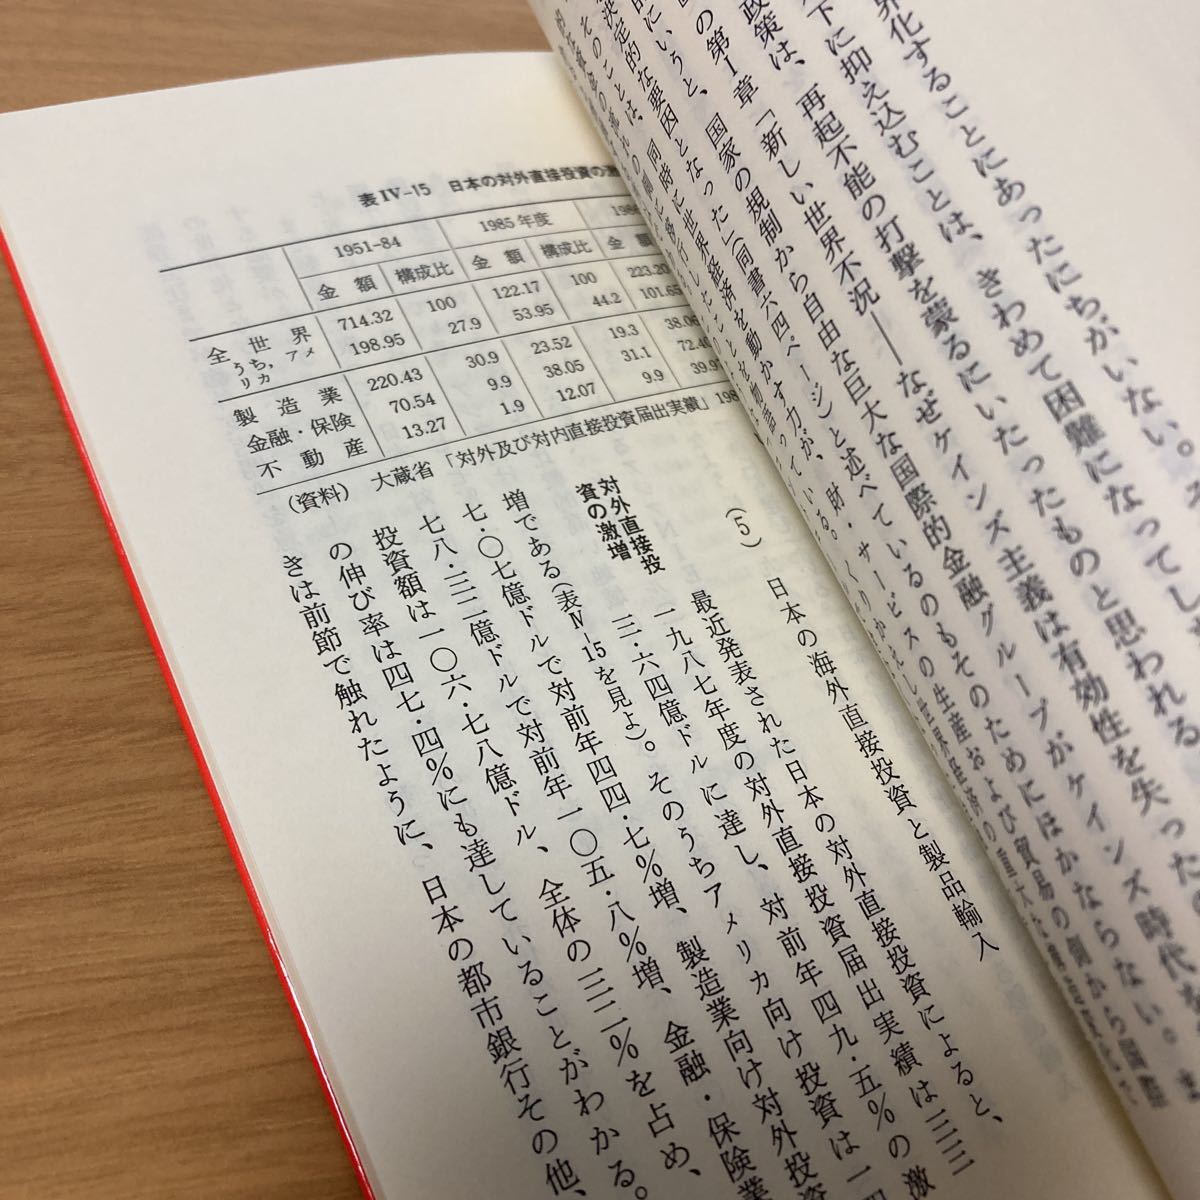 界化することにあったにちがいない。
下に抑え込むことは、きわめて困難になってしま
政策は、再起不能の打撃を蒙るにいたったものと思われる
の第Ⅰ章「新しい世界不況――なぜケインズ主義は有効性を失ったの
にいうと、国家の規制から自由な巨大な国際的金融グループがケインズ時代を
決定的な要因となった」(同書六四ページ)と述べているのもそのためにほかならない。
そのことは、同時に世界経済を動かす力が、財・サービスの生産および貿易の側から
表IV-15 日本の対外直接投資の激
1951-84 1985年度 1986
金額 構成比 金額 構成比 金額
全世界 714.32 100 122.17 100 223.20
うち、アメリカ 198.95 27.9 53.95 44.2 101.65
製造業 220.43 30.9 23.52 19.3 38.06
金融・保険 70.54 9.9 38.05 31.1 72.40
不動産 13.27 1.9 12.07 9.9 39.97
(資料) 大蔵省「対外及び対内直接投資届出実績」198
(5) 日本の海外直接投資と製品輸入
対外直接投
資の激増
最近発表された日本の対外直接投資によると、
一九八七年度の対外直接投資届出実績は三三
三・六四億ドルに達し、対前年四九・五%の激
増である(表Ⅳ-15を見よ)。そのうちアメリカ向け投資は一四
七・〇七億ドルで対前年四四・七%増、製造業向け対外投資
七八・三二億ドルで対前年一〇五・八%増、金融・保険業
投資額は一〇六・七八億ドル、全体の三二%を占め、
の伸び率は四七・四%にも達していることがわかる。
きは前節で触れたように、日本の都市銀行その他、